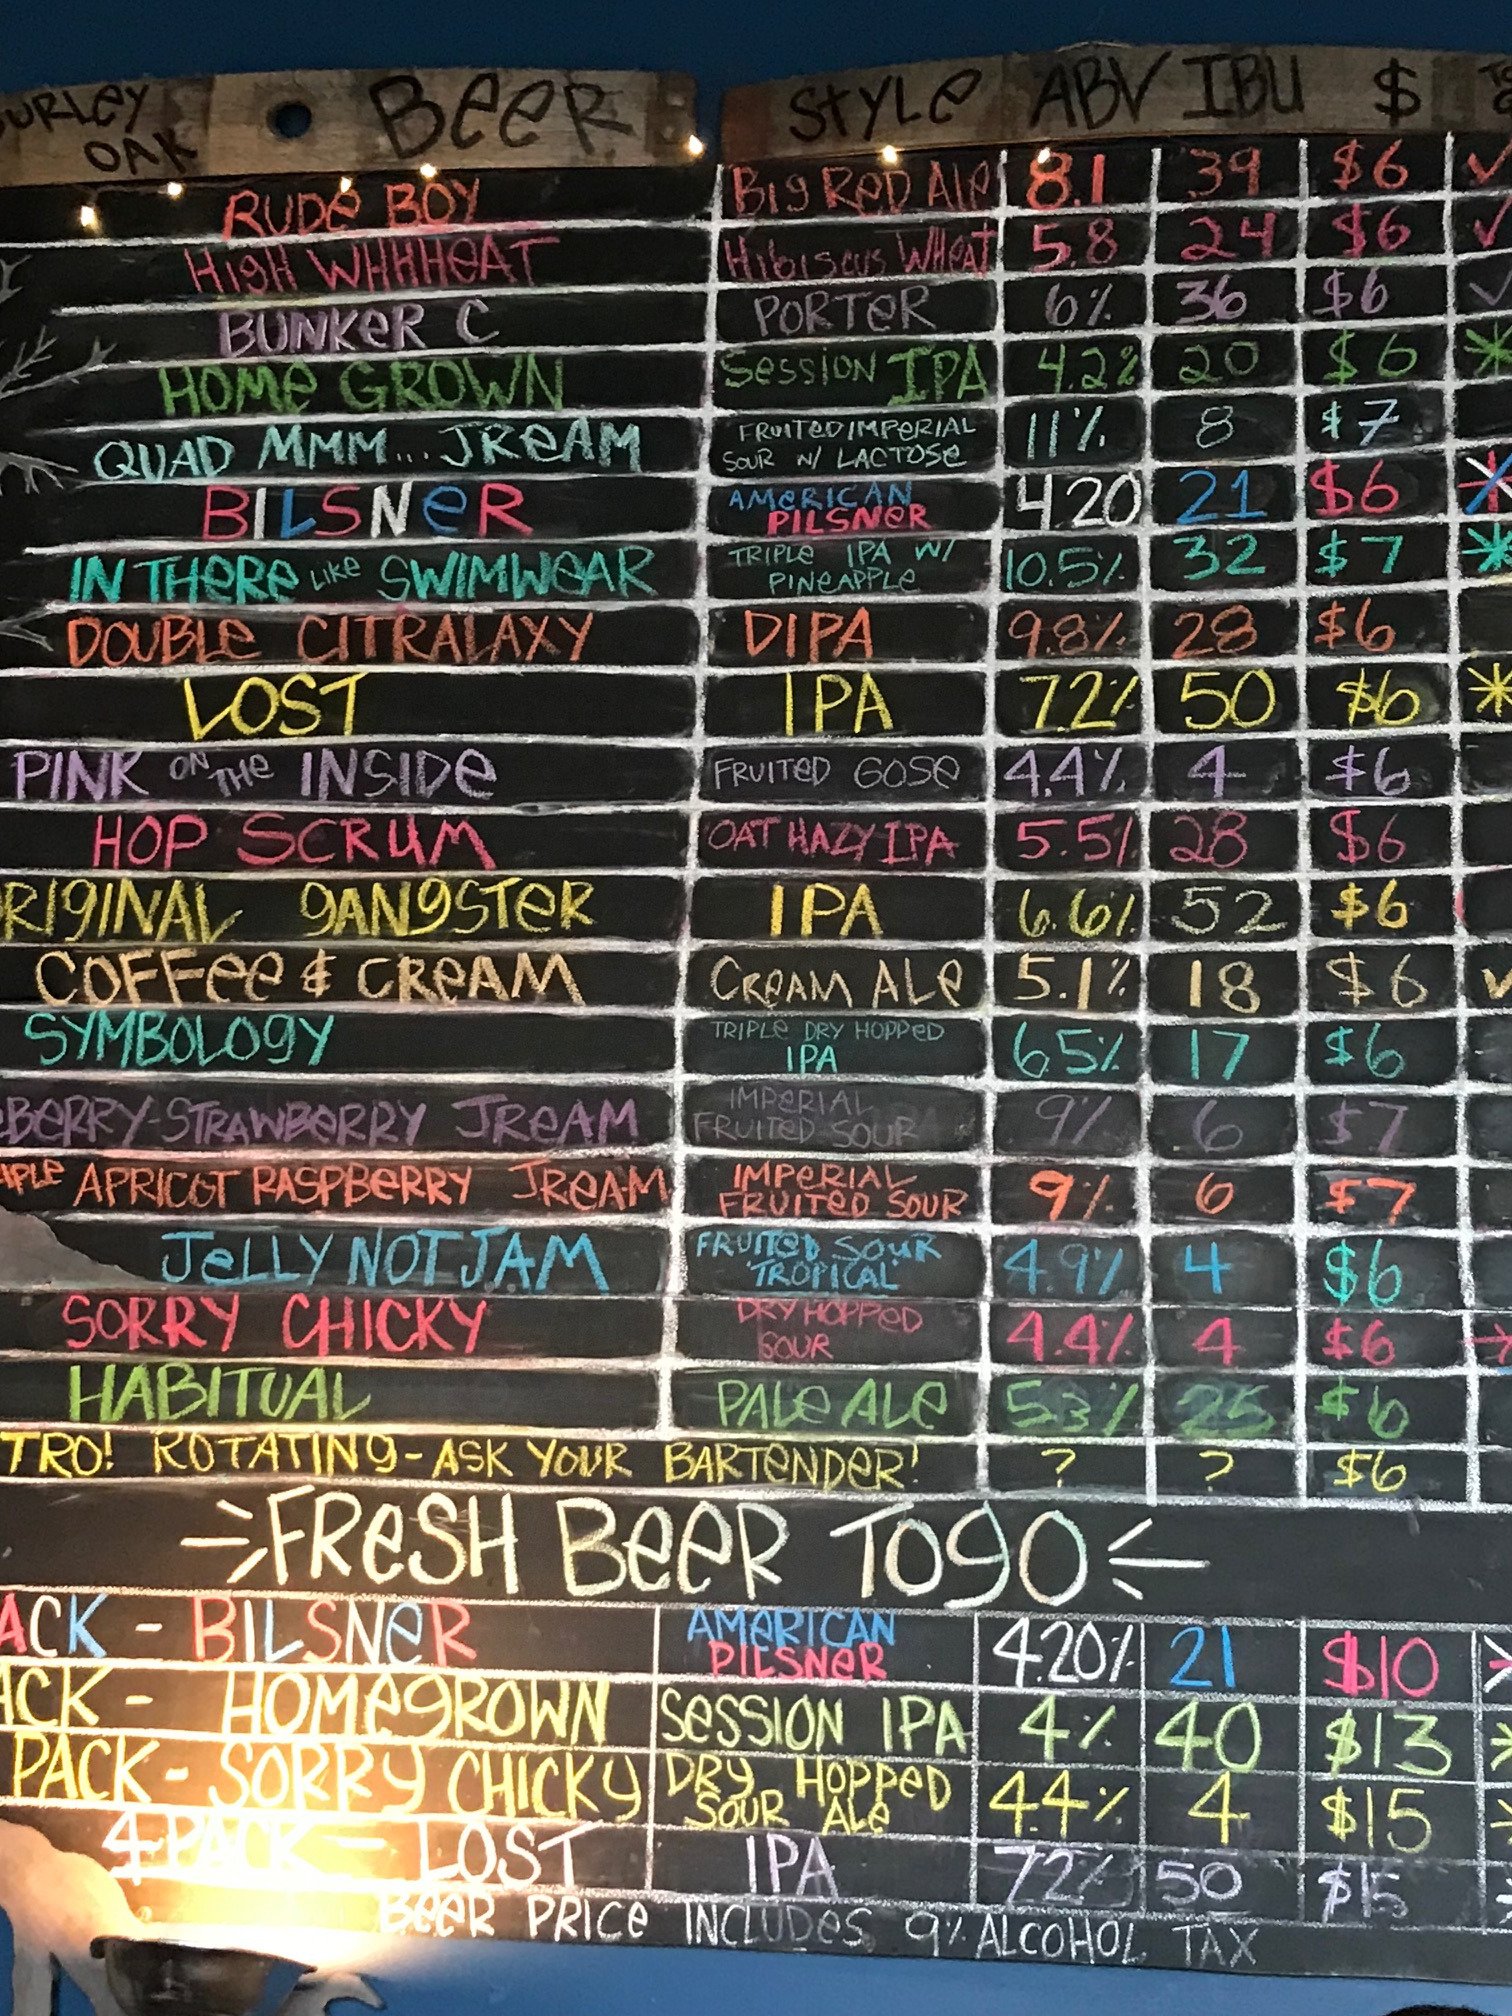 OAK BEER STYLE ABV IBU $
RUDE BOY BIG RED ALE 8.1 39 $6
HIGH WHHHEAT HIBISCUS WHEAT 5.8 24 $6
BUNKER C PORTER 6% 36 $6
HOME GROWN SESSION IPA 4.2% 20 $6
QUAD MMM... JREAM FRUITED IMPERIAL SOUR W/ LACTOSE 11% 8 $7
BILSNER AMERICAN PILSNER 4.20 21 $6
IN THERE LIKE SWIMWEAR TRIPLE IPA W/ PINEAPPLE 10.5% 32 $7
DOUBLE CITRALAXY DIPA 9.8% 28 $6
LOST IPA 7.2% 50 $6
PINK ON THE INSIDE FRUITED GOSE 4.4% 4 $6
HOP SCRUM OAT HAZY IPA 5.5% 28 $6
RIGINAL GANGSTER IPA 6.6% 52 $6
COFFEE & CREAM CREAM ALE 5.1% 18 $6
SYMBOLOGY TRIPLE DRY HOPPED IPA 6.5% 17 $6
BERRY-STRAWBERRY JREAM IMPERIAL FRUITED SOUR 9% 6 $7
APRICOT RASPBERRY JREAM IMPERIAL FRUITED SOUR 9% 6 $7
JELLY NOT JAM FRUITED SOUR "TROPICAL" 4.9% 4 $6
SORRY CHICKY DRY HOPPED SOUR 4.4% 4 $6
HABITUAL PALE ALE 5.3% 25 $6
TRO! ROTATING - ASK YOUR BARTENDER! ? ? $6
FRESH BEER TO GO
ACK - BILSNER AMERICAN PILSNER 4.20% 21 $10
ACK - HOMEGROWN SESSION IPA 4% 40 $13
PACK - SORRY CHICKY DRY HOPPED SOUR ALE 4.4% 4 $15
4 PACK - LOST IPA 7.2% 50 $15
BEER PRICE INCLUDES 9% ALCOHOL TAX